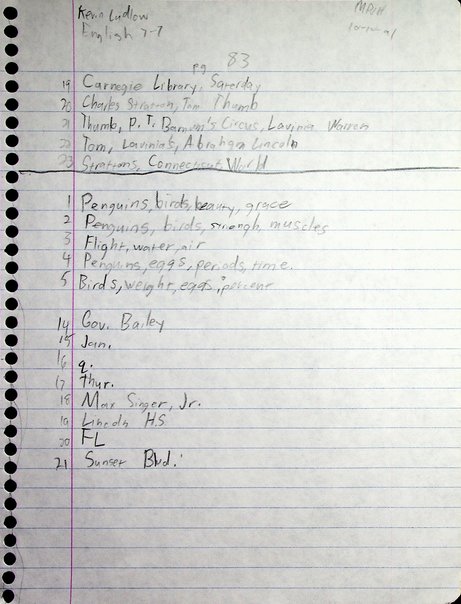 Kevin Ludlow
English 7-7
pg 83
19 Carnegie Library, Saterday
20 Charles Stratton, Tom Thumb
21 Thumb, P.T. Barnum's Circus, Lavinia Warren
22 Tom, Lavinia's, Abraham Lincoln
23 Strattons, Connecticut, World
1 Penguins, birds, beauty, grace
2 Penguins, birds, strengh, muscles
3 Flight, water, air
4 Penguins, eggs, periods, time.
5 Birds, weight, eggs, percent
14 Gov. Bailey
15 Jan.
16 q.
17 Thur.
18 Max Singer, Jr.
19 Lincoln H.S
20 FL
21 Sunset Blvd.